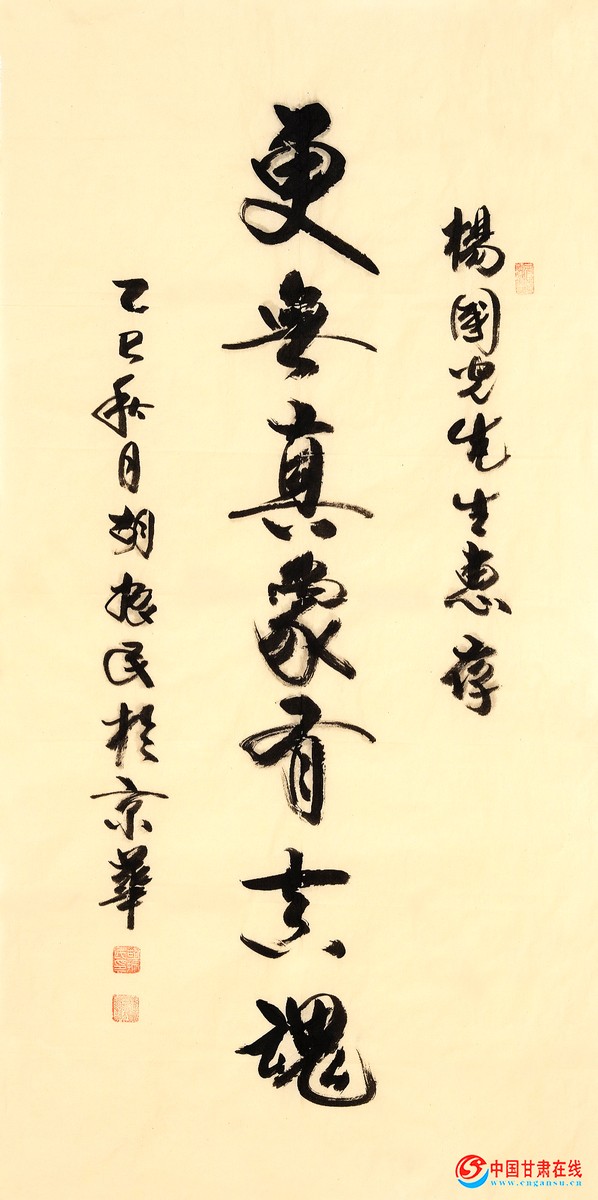 楊國光先生惠存
更無真象有真魂
乙巳秋月胡振民於京華
中国甘肃在线
www.cngansu.cn